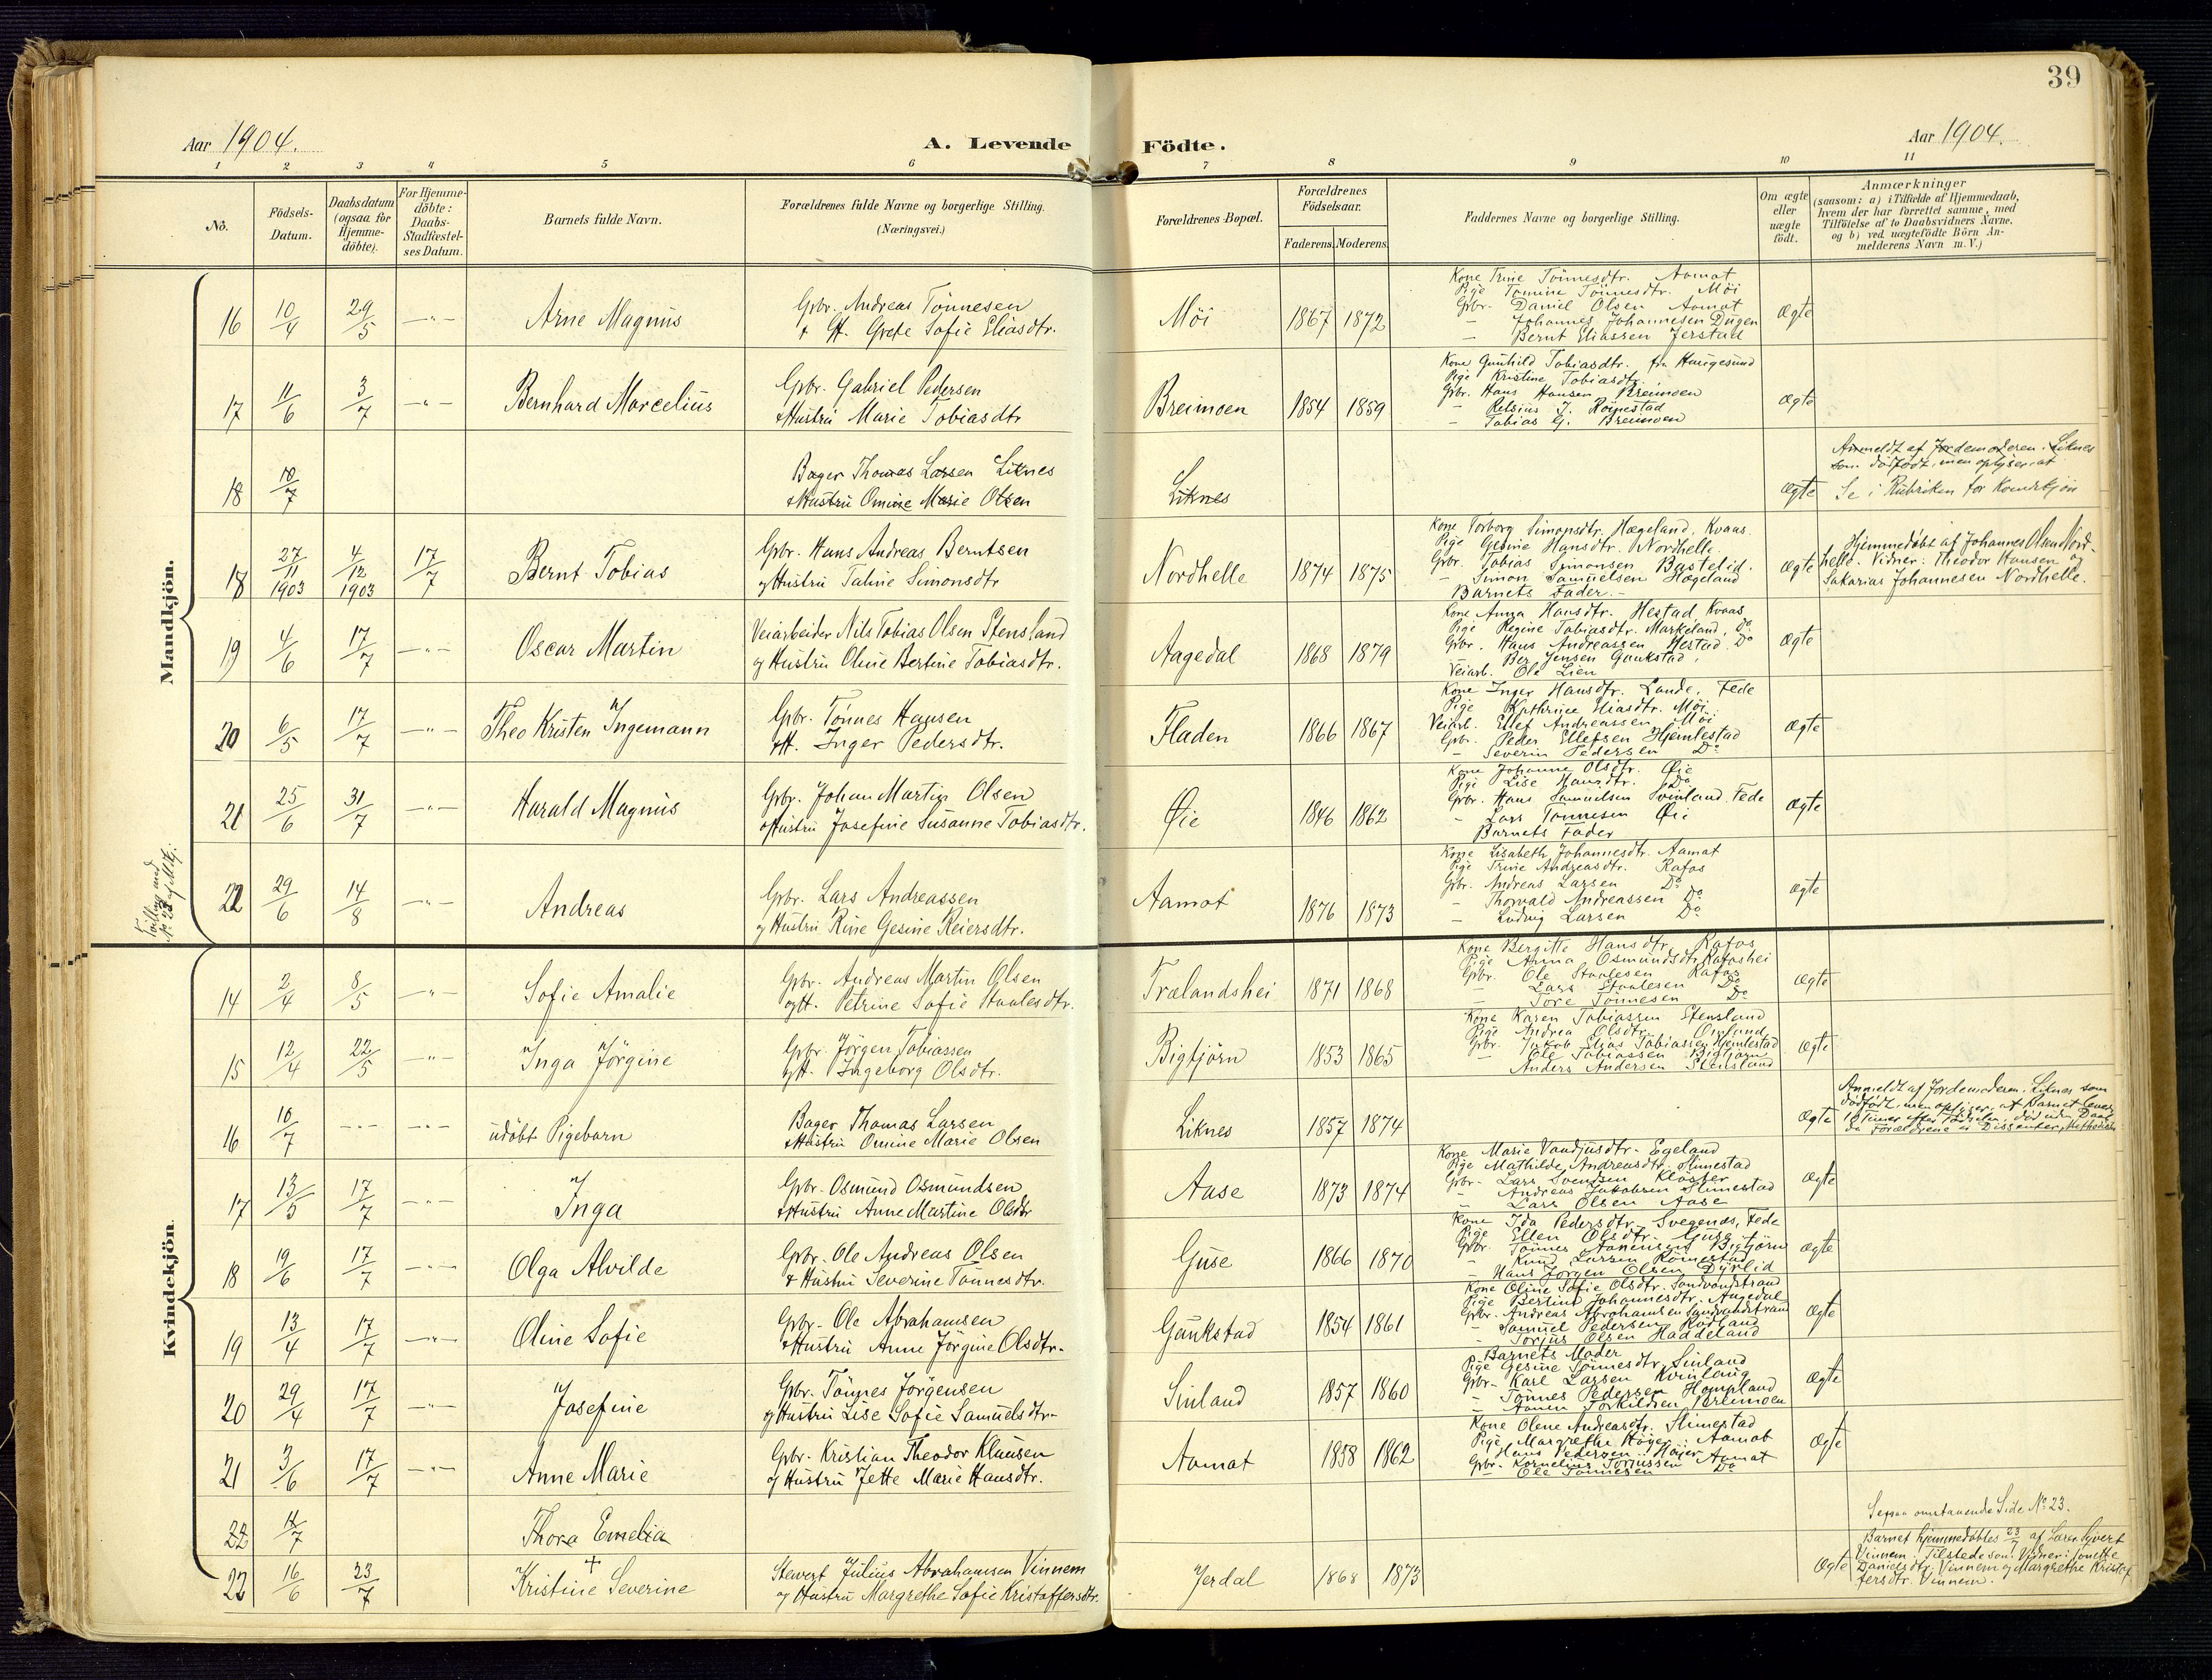 39
Aar 1904.
A. Levende Födte.
Aar 1904.
1 2 3 4 5 6 7 8 9 10 11
No.
Födsels-Datum.
Daabsdatum (ogsaa for Hjemme-döbte).
For Hjemme-döbte: Daabs-Stadfæstel-ses Datum.
Barnets fulde Navn.
Forældrenes fulde Navne og borgerlige Stilling. (Næringsvei.)
Forældrenes Bopæl.
Forældrenes Födselsaar.
Faderens. Moderens.
Faddernes Navne og borgerlige Stilling.
Om ægte eller uægte födt.
Anmærkninger
(saasom: a) i Tilfælde af Hjemmedaab,
hvem der har forrettet samme, med
Tilföielse af to Daabsvidners Navne,
og b) ved uægtefödte Börn An-
melderens Navn m. V.)
Mandkjön.
16 10/4 29/5 —"— Arne Magnus
Gbr. Andreas Tönnesen
& H. Grete Sofie Eliasdtr.
Möi 1867 1872
Kone Trine Tönnesdtr. Aamot
Pige Tomine Tönnesdtr. Möi
Gbr. Daniel Olsen Aamot
— Johannes Johannesen Dugen
— Bernt Eliassen Jerstad
Ægte
17 11/6 3/7 —"— Bernhard Marcelius
Gbr. Gabriel Pedersen
& Hustru Marie Tobiasdtr
Breimoen 1854 1859
Kone Gunhild Tobiasdtr. fra Haugesund
Pige Kristine Tobiasdtr.
Gbr. Hans Hansen Breimoen
— J. Röinestad
— Tobias G. Breimoen
Ægte
18 10/7
Bager Thomas Larsen Liknes
& Hustru Omine Marie Olsen
Liknes
Ægte
Anmeldt af Jordemoderen. Liknes
som dödfödt, men oplyser, at
Se i Rubriken for Kvindekjön
18 27/11 1903 4/12 1903 17/7 Bernt Tobias
Gbr. Hans Andreas Berntsen
og Hustru Taline Simonsdtr
Nordhelle 1874 1875
Kone Torborg Simonsdtr. Hægeland, Kvaas.
Pige Gesine Hansdtr. Nordhelle.
Gbr. Tobias Simonsen Bastelid.
— Simon Samuelsen Hægeland
Barnets Fader.
Ægte
Hjemmedöbt af Johannes Olsen Nord-
helle. Vidner: Theodor Hansen og
Sakarias Johannesen Nordhelle.
19 4/6 17/7 —"— Oscar Martin
Veiarbeider Nils Tobias Olsen Stensland
og Hustru Oline Bertine Tobiasdtr.
Aagedal 1868 1879
Kone Anna Hansdtr. Hestad Kvaas
Pige Regine Tobiasdtr. Markeland, Do
Gbr. Hans Andreassen Hestad. Do
— Jensen Gaukstad,
Veiarb. Ole Lien
Ægte
20 6/5 17/7 —"— Theo Kristen Ingemann
Gbr. Tönnes Hansen
& H. Inger Pedersdtr.
Fladen 1866 1867
Kone Inger Hansdtr. Lande, Fede
Pige Kathrine Eliasdtr. Möi
Veiarb. Ellef Andreassen Möi
Gbr. Peder Ellefsen Hjemlestad
— Severin Pedersen Do
Ægte
21 25/6 31/7 —"— Harald Magnus
Gbr. Johan Martin Olsen
& Hustru Josefine Susanne Tobiasdtr.
Öie 1846 1862
Kone Johanne Olsdtr. Öie
Pige Lise Hansdtr. Do
Gbr. Hans Samuelsen Svinland. Fede
— Lars Tönnesen Öie
Barnets Fader
Ægte
22 29/6 14/8 —"— Andreas
Gbr. Lars Andreassen
og Hustru Rine Gesine Reiersdtr.
Aamot 1876 1873
Kone Lisabeth Johannesdtr. Aamot
Pige Trine Andreasdtr. Rafos
Gbr. Andreas Larsen Do
— Thorvald Andreassen Do
— Ludvig Larsen Do
Ægte
Kvindekjön
14 2/4 8/5 —"— Sofie Amalie
Gbr. Andreas Martin Olsen
og H. Petrine Sofie Staalesdtr.
Trælandshei 1871 1868
Kone Bergitte Hansdtr. Rafos
Pige Anna Osmundsdtr. Rafoshei
Gbr. Ole Staalesen Rafos
— Lars Staalesen Do
— Tore Tönnesen Do
Ægte
15 12/4 22/5 —"— Inga Jörgine
Gbr. Jörgen Tobiassen
og H. Ingeborg Olsdtr.
Bigtjörn 1853 1865
Kone Karen Tobiassen Stensland
Pige Andrea Olsdtr.
Gbr. Jakob Elias Tobiassen Hjemlestad
— Ole Tobiassen Bigtjörn
Anders Andersen Stensland
Ægte
16 10/7 udöbt Pigebarn
Bager Thomas Larsen
& Hustru Omine Marie Olsen
Liknes 1857 1874
Ægte
Anmeldt af Jordemoderen. Liknes som
dödfödt, men oplyser, at Barnet levede
Timer efter Födselen, död uden Daab
da Forældrene er Dissenter,
17 13/5 17/7 —"— Inga
Gbr. Osmund Osmundsen
& Hustru Anne Martine Olsdtr
Aase 1873 1874
Kone Marie Egeland
Pige Mathilde Andreasdtr. Slimestad
Gbr. Lars Svendsen Kloster
— Andreas Jakobsen Slimestad
— Lars Olsen Aase
Ægte
18 19/6 17/7 —"— Olga Alvilde
Gbr. Ole Andreas Olsen
& Hustru Severine Tönnesdtr.
Guse 1866 1870
Kone Ida Pedersdtr. Svegenes, Fede
Pige Ellen Olsdtr. Guse
Gbr. Tönnes Bigtjörn
— Knud Larsen Röinestad
— Hans Jörgen Olsen Dyrlid
Ægte
19 13/4 17/7 —"— Oline Sofie
Gbr. Ole Abrahamsen
& Hustru Anne Jörgine Olsdtr.
Gaukstad 1854 1861
Kone Oline Sofie Olsdtr. Sandvandstrand
Pige Bertine Johannesdtr. Aagedal
Gbr. Andreas Abrahamsen Sandvandstrand
— Samuel Pedersen Rödland
— Torjus Olsen Haddeland
Ægte
20 29/4 17/7 —"— Josefine
Gbr. Tönnes Jörgensen
og Hustru Lise Sofie Samuelsdtr.
Sinland 1857 1860
Barnets Moder
Pige Gesine Tönnesdtr. Sinland
Gbr. Karl Larsen Kvinlaug
— Tönnes Pedersen Hompland
— Aanen Torkildsen
Ægte
21 3/6 17/7 —"— Anne Marie
Gbr. Kristian Theodor Klausen
og Hustru Jette Marie Hansdtr.
Aamot 1858 1862
Kone Olene Andreasdtr. Slimestad
Pige Margrethe Höyer. Aamot
Hans Pedersen Höyer
Gbr. Kornelius Torjussen Aamot
— Ole Tönnesen Do
Ægte
22 11/7 Thora Emelia
Se paa omstaaende Side No 23.
23 16/6 23/7 Kristine Severine +
Stewert Julius Abrahamsen Vinnem
og Hustru Margrethe Sofie Kristoffersdtr.
Jerdal 1868 1873
Ægte
Barnet hjemmedöbtes 23/7 af Lærer
Vinnem. Tilstede som Vidner:
Danielsdtr. Vinnem og Margrethe Kristof
fersdtr. Vinnem.